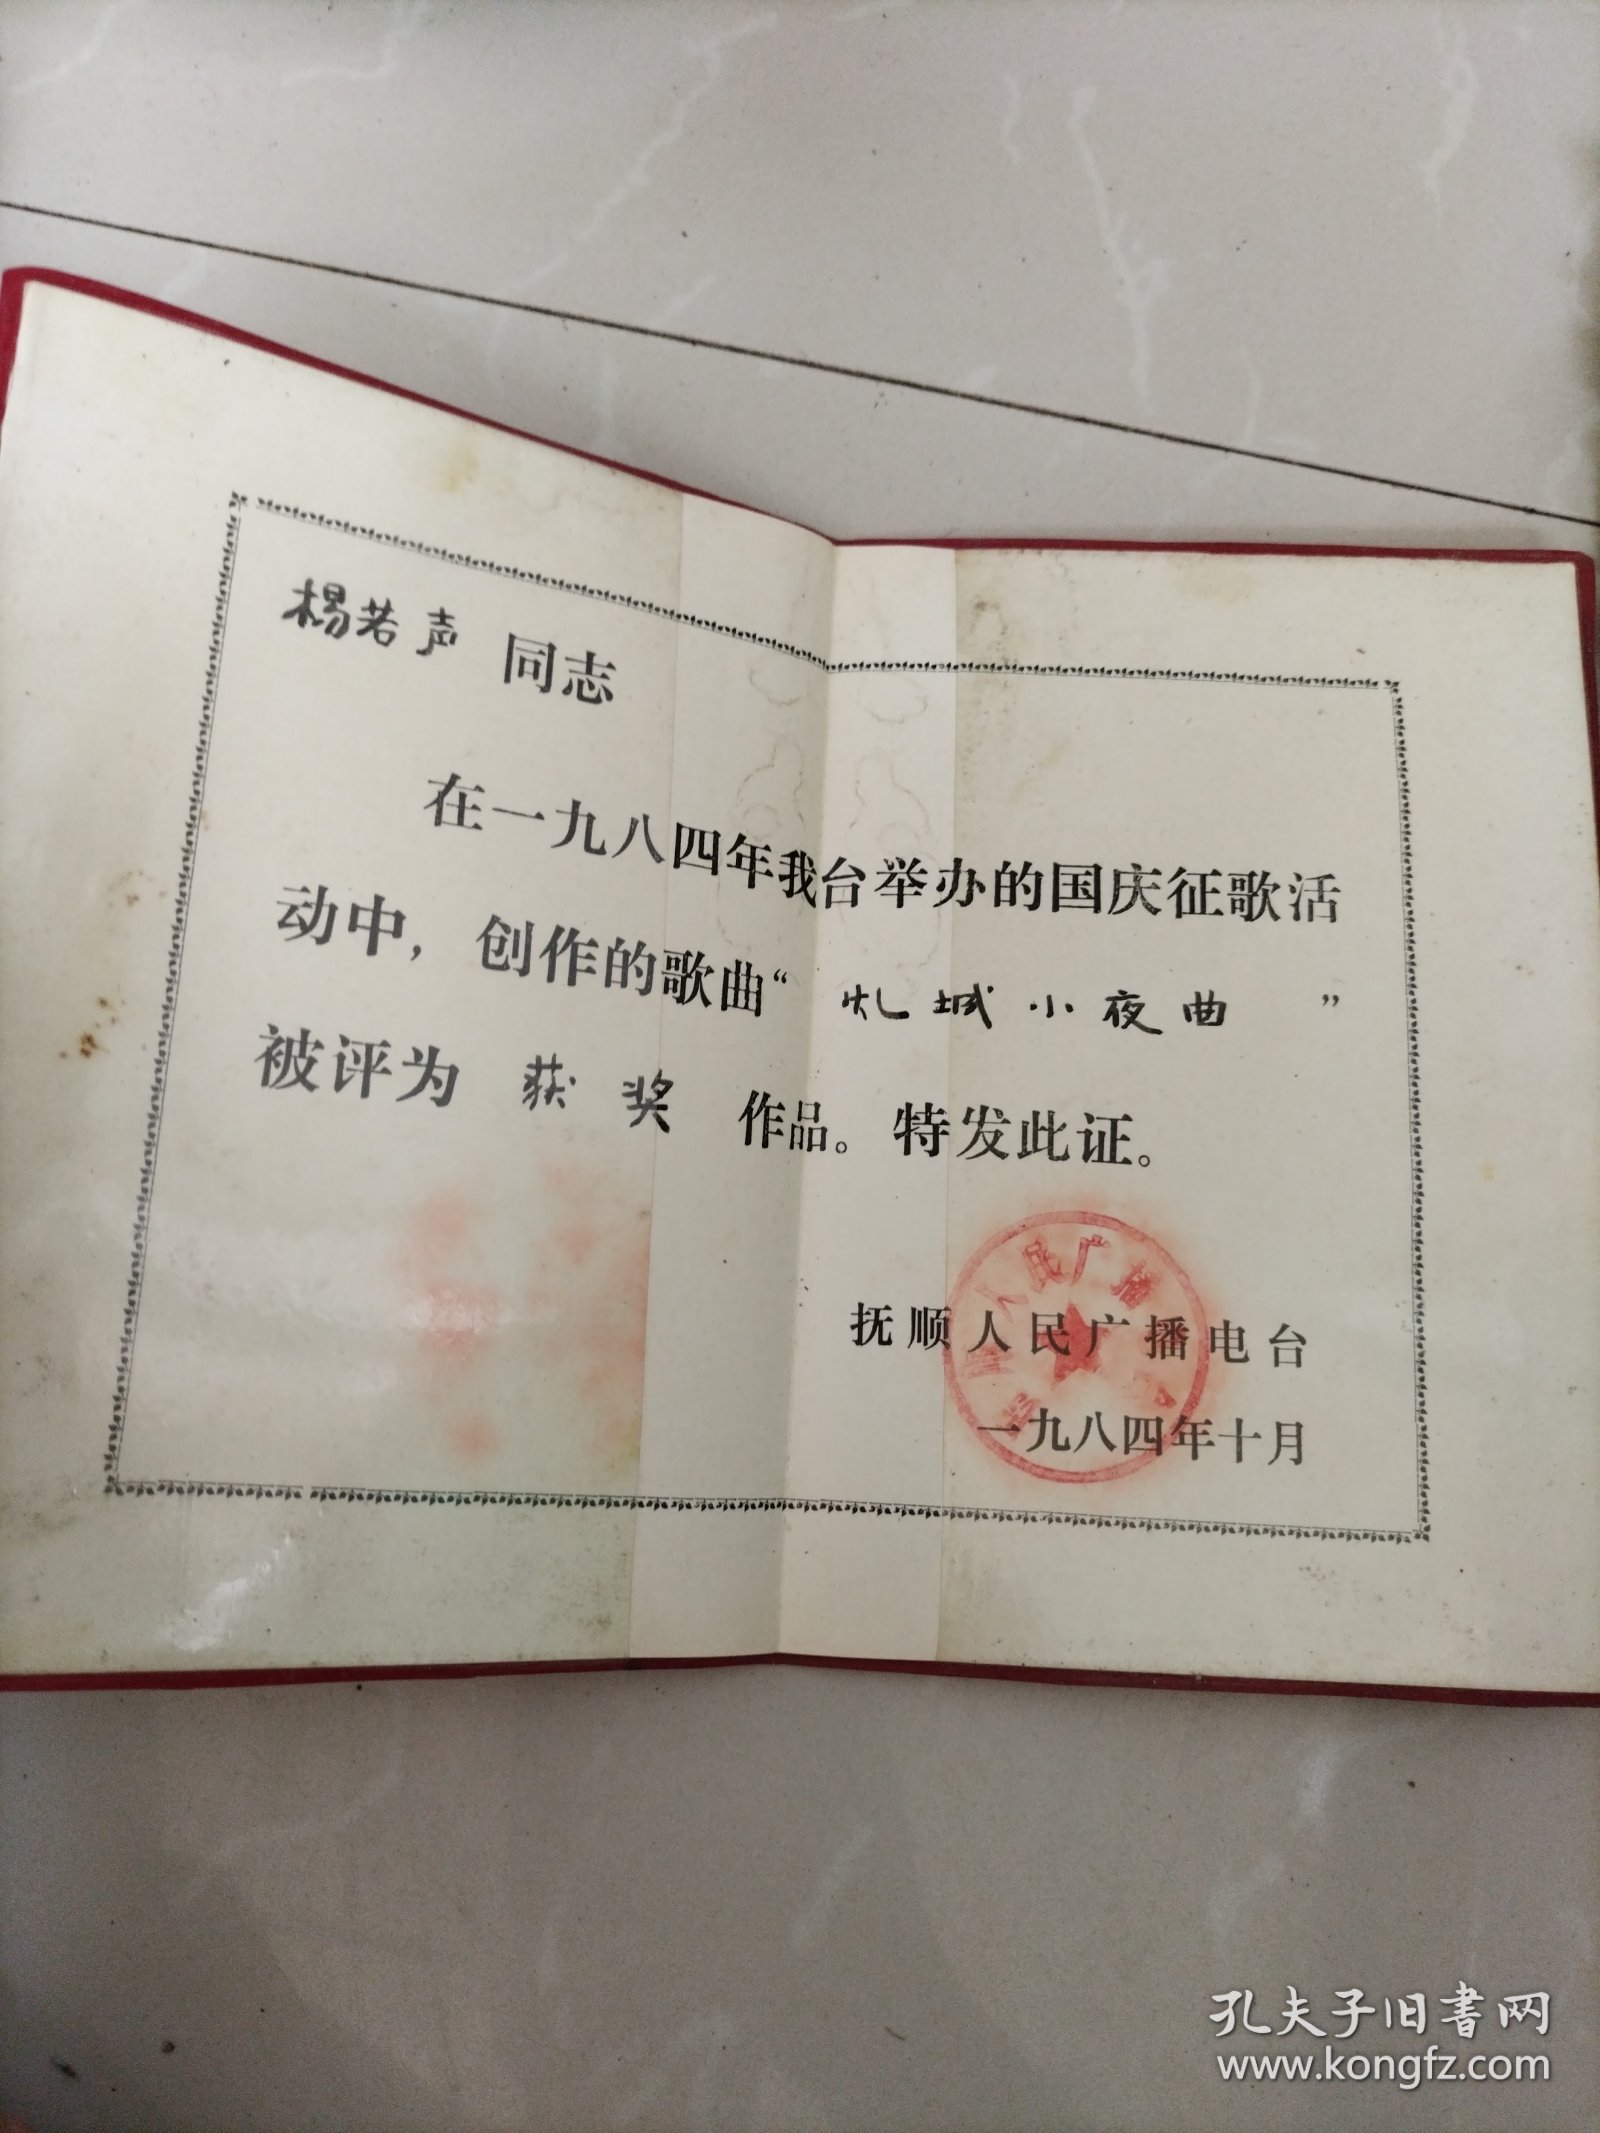 杨若声 同志
在一九八四年我台举办的国庆征歌活
动中，创作的歌曲“ 城小夜曲 ”
被评为 获奖 作品。特发此证。
人民广播
抚顺人民广播电台
一九八四年十月
孔夫子旧书网
www.kongfz.com